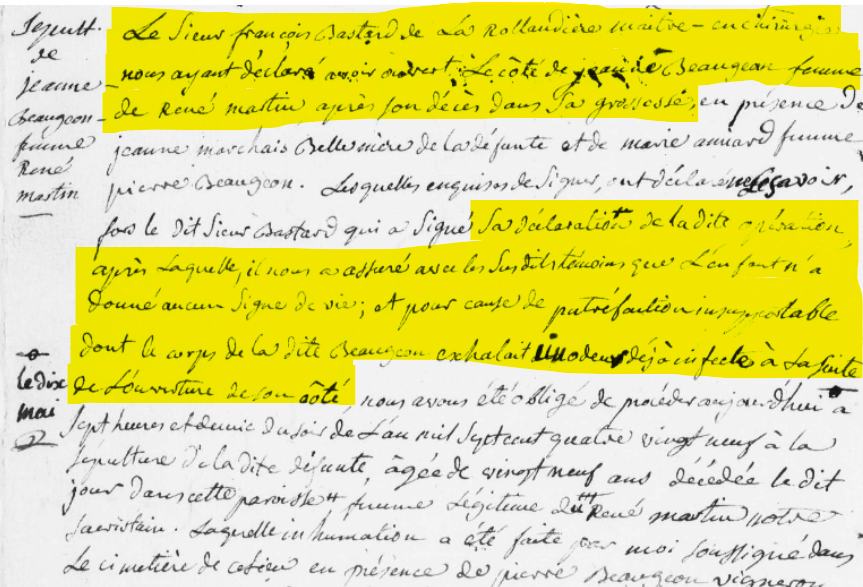 Sepult.
de
jeanne
Beaugeon
femme
René
martin
Le Sieur françois Bastard de La Rollandière maitre en chirurgie
nous ayant déclaré avoir ouvert Le côté de jeanne Beaugeon femme
de René martin après son décès dans Sa grossesse, en présence de
jeanne marchais Belle mère de la défunte et de marie femme
pierre Beaugeon. Lesquelles enquises de Signer, ont déclaré ne Sçavoir,
fors le dit Sieur Bastard qui a Signé Sa déclaration de la dite opération
après Laquelle, il nous a assuré avec les Susdits témoins que L'enfant n'a
donné aucun Signe de vie; et pour cause de putréfaction insupportable
dont le corps de la dite Beaugeon exhalait une odeur déjà infecte à La Suite
de L'ouverture de son côté, nous avons été obligé de procéder aujourd'hui à
le dix
mai
Sept heures et demie du soir de L'an mil Sept cent quatre vingt neuf à la
Sepulture de la dite défunte, âgée de vingt neuf ans décédée le dit
jour dans cette paroisse femme Légitime de René martin notre
Sacristain. Laquelle inhumation a été faite par moi Soussigné dans
Le cimetière de en présence de pierre Beaugeon vigneron